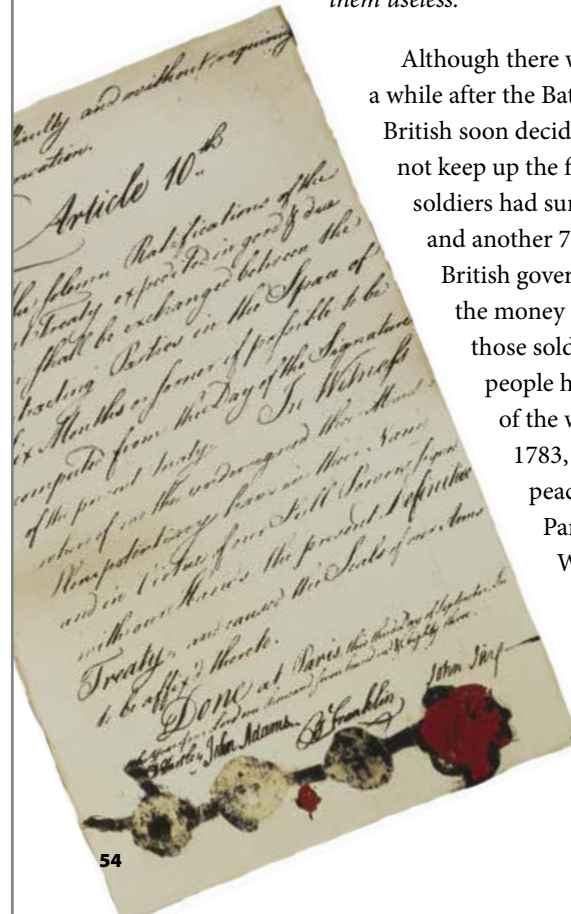 them useless.
Although there w
a while after the Bat
British soon decid
not keep up the f
soldiers had sur
and another 7
British gover
the money
those sold
people h
of the w
1783,
peac
Par
W
ficulty and without requiring
Article 10th
The solemn Ratifications of the
t Treaty expedited in good & due
shall be exchanged between the
tracting Parties in the Space of
ix Months or sooner if possible to be
computed from the Day of the Signature
of the present Treaty. In Witness
whereof we the undersigned their Minis
Plenipotentiary have in their Name
and in Virtue of our Full Powers signed
with our Hands the present Definitive
Treaty, and caused the Seals of our Arms
to be affix'd thereto.
Done at Paris, this third Day of September, In
the Year of our Lord one thousand seven hundred & eighty three.
D Hartley John Adams B Franklin John Jay
54